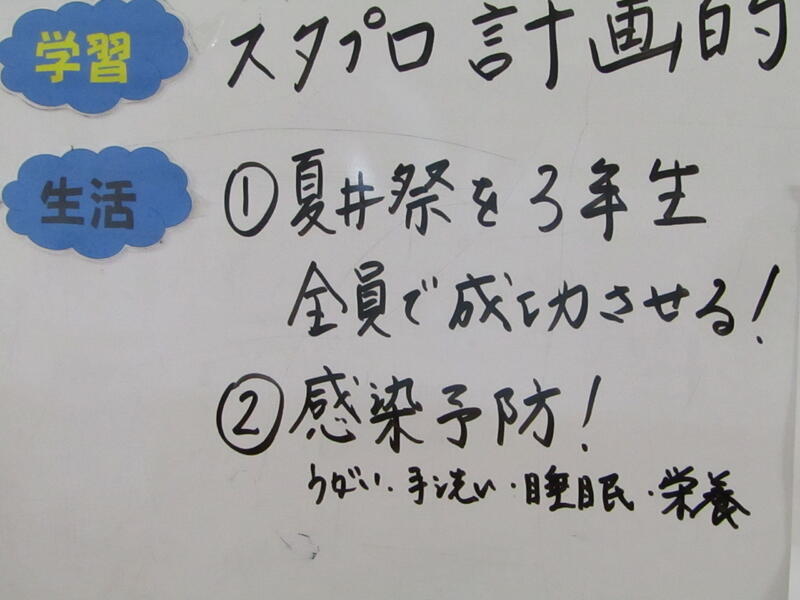 学習 スタプロ 計画的
生活 ①夏井祭を3年生
全員で成功させる!
②感染予防!
うがい・手洗い・睡眠・栄養